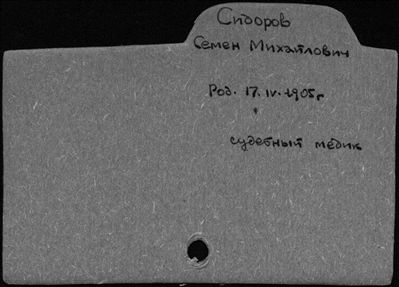 Сидоров
Семен Михайлович
Род. 17.IV.1905г
судебный медик